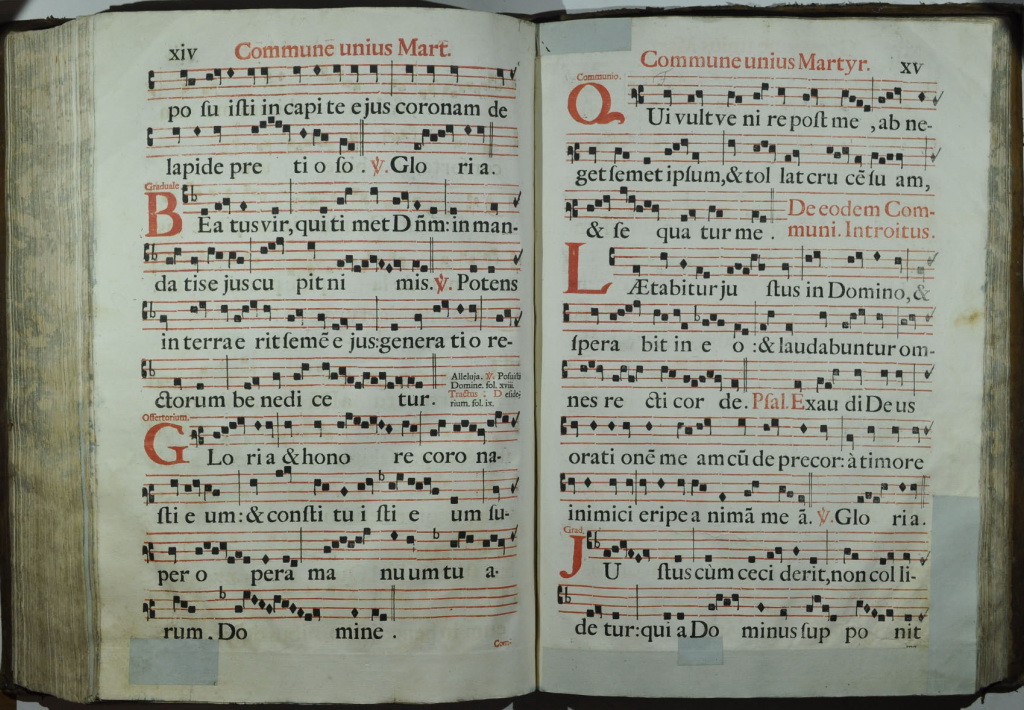 xiv Commune unius Mart.
po su isti in capi te ejus coronam de
lapide pre ti o so . ℣. Glo ri a.
Graduale
BEa tus vir, qui ti met Dñm: in man-
da tis e jus cu pit ni mis. ℣. Potens
in terra e rit semẽ e jus: genera ti o re-
ctorum be nedi ce tur.
Alleluja. ℣. Posuisti
Domine. fol. xviii.
Tractus : Deside-
rium. fol. ix.
Offertorium.
GLo ri a & hono re coro na-
sti e um: & consti tu i sti e um su-
per o pera ma nu um tu a-
rum . Do mine .
Com-
Commune unius Martyr. xv
Communio.
QUi vult ve ni re post me , ab ne-
get semet ipsum, & tol lat cru cẽ su am,
& se qua tur me . De eodem Com-
muni. Introitus.
LÆtabitur ju stus in Domino, &
spera bit in e o : & laudabuntur om-
nes re cti cor de. Psal. Exau di De us
orati onẽ me am cũ de precor: à timore
inimici eripe a nimã me ã. ℣. Glo ri a.
Grad.
JU stus cùm ceci derit, non col li-
de tur: qui a Do minus sup po nit